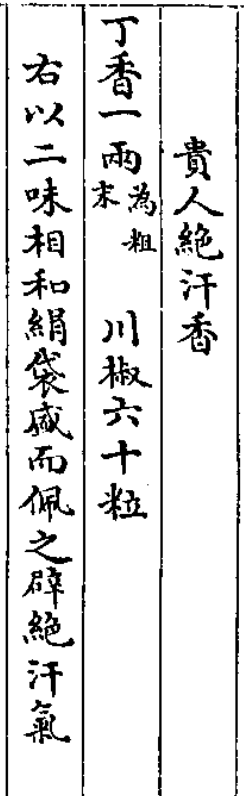 貴人絶汗香
丁香一兩為粗末 川椒六十粒
右以二味相和絹袋盛而佩之辟絶汗氣